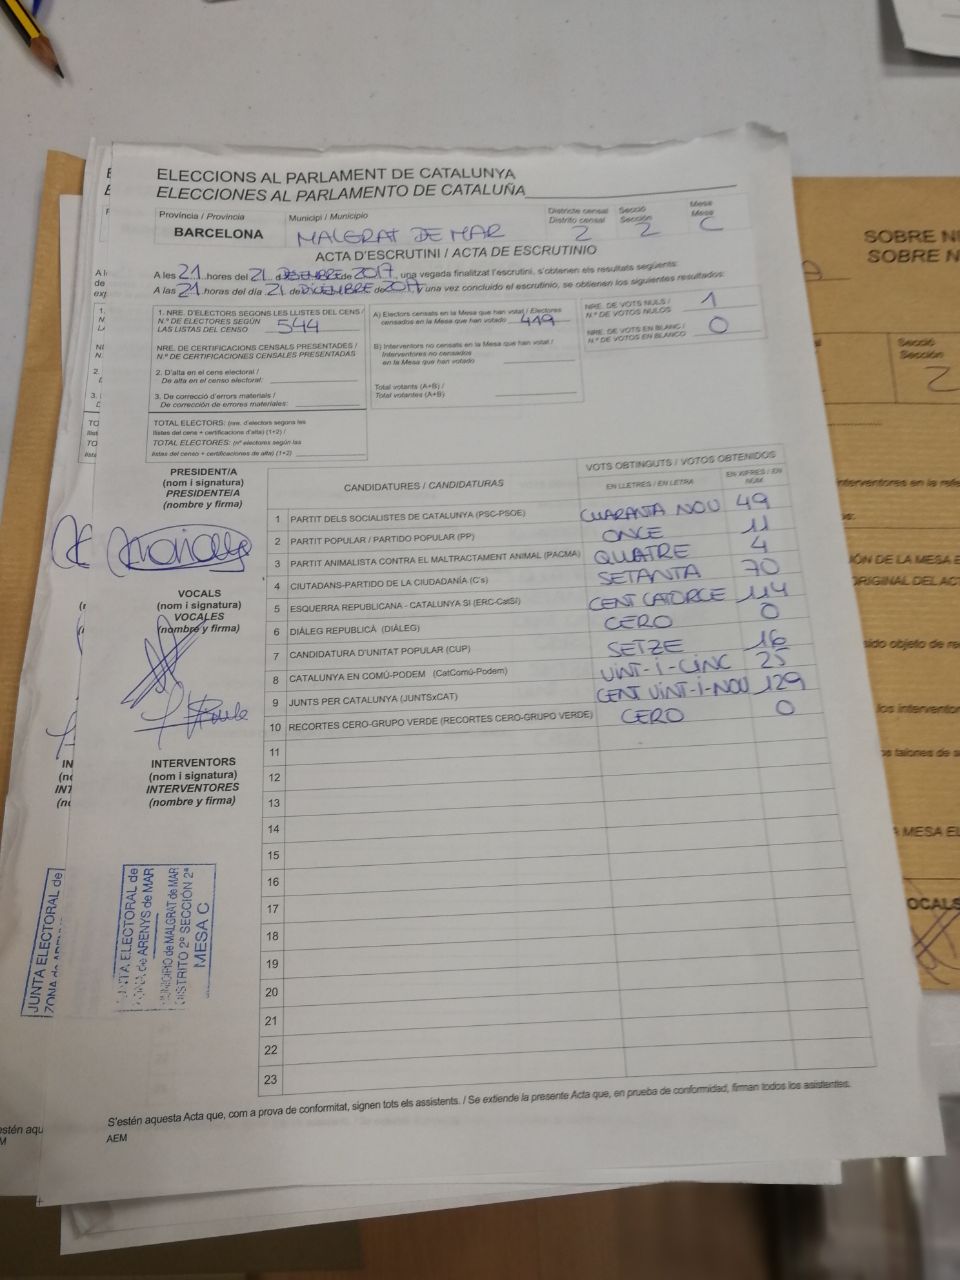 ELECCIONS AL PARLAMENT DE CATALUNYA
ELECCIONES AL PARLAMENTO DE CATALUÑA
Província / Provincia
BARCELONA
Municipi / Municipio
MALGRAT DE MAR
Districte censal
Distrito censal
2
Secció
Sección
2
Mesa
Mesa
C
ACTA D'ESCRUTINI / ACTA DE ESCRUTINIO
A les 21 hores del 21 de DESEMBRE de 2017, una vegada finalitzat l'escrutini, s'obtenen els resultats següents:
A las 21 horas del día 21 de DICIEMBRE de 2017 una vez concluido el escrutinio, se obtienen los siguientes resultados:
1. NRE. D'ELECTORS SEGONS LES LLISTES DEL CENS /
N.º DE ELECTORES SEGÚN
LAS LISTAS DEL CENSO 544
NRE. DE CERTIFICACIONS CENSALS PRESENTADES /
N.º DE CERTIFICACIONES CENSALES PRESENTADAS
2. D'alta en el cens electoral /
De alta en el censo electoral:
3. De correcció d'errors materials /
De corrección de errores materiales:
TOTAL ELECTORS: (nre. d'electors segons les
llistes del cens + certificacions d'alta) (1+2) /
TOTAL ELECTORES: (nº electores según las
listas del censo + certificaciones de alta) (1+2)
A) Electors censats en la Mesa que han votat / Electores
censados en la Mesa que han votado 419
B) Interventors no censats en la Mesa que han votat /
Interventores no censados
en la Mesa que han votado
Total votants (A+B) /
Total votantes (A+B)
NRE. DE VOTS NULS /
N.º DE VOTOS NULOS 1
NRE. DE VOTS EN BLANC /
N.º DE VOTOS EN BLANCO 0
PRESIDENT/A
(nom i signatura)
PRESIDENTE/A
(nombre y firma)
VOCALS
(nom i signatura)
VOCALES
(nombre y firma)
INTERVENTORS
(nom i signatura)
INTERVENTORES
(nombre y firma)
CANDIDATURES / CANDIDATURAS
VOTS OBTINGUTS / VOTOS OBTENIDOS
EN LLETRES / EN LETRA
EN XIFRES / EN NÚM.
1 PARTIT DELS SOCIALISTES DE CATALUNYA (PSC-PSOE) CUARANTA NOU 49
2 PARTIT POPULAR / PARTIDO POPULAR (PP) ONCE 11
3 PARTIT ANIMALISTA CONTRA EL MALTRACTAMENT ANIMAL (PACMA) QUATRE 4
4 CIUTADANS-PARTIDO DE LA CIUDADANÍA (C's) SETANTA 70
5 ESQUERRA REPUBLICANA - CATALUNYA SI (ERC-CatSí) CENT CATORCE 114
6 DIÀLEG REPUBLICÀ (DIÀLEG) CERO 0
7 CANDIDATURA D'UNITAT POPULAR (CUP) SETZE 16
8 CATALUNYA EN COMÚ-PODEM (CatComú-Podem) VINT-I-CINC 25
9 JUNTS PER CATALUNYA (JUNTSxCAT) CENT VINT-I-NOU 129
10 RECORTES CERO-GRUPO VERDE (RECORTES CERO-GRUPO VERDE) CERO 0
11
12
13
14
15
16
17
18
19
20
21
22
23
JUNTA ELECTORAL de
ZONA de ARENYS de MAR
MUNICIPIO de MALGRAT de MAR
DISTRITO 2º SECCIÓN 2ª
MESA C
S'estén aquesta Acta que, com a prova de conformitat, signen tots els assistents. / Se extiende la presente Acta que, en prueba de conformidad, firman todos los asistentes.
AEM
JUNTA ELECTORAL de
SOBRE
SOBRE
Secció
Sección
2
DE LA MESA